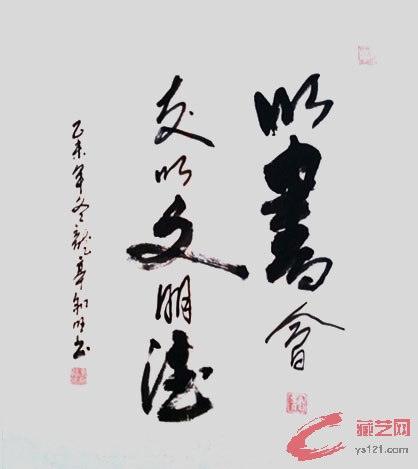 以書會
友以文明德
乙未年冬
藏艺网
ys121.com